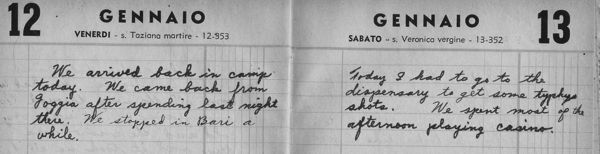 12
GENNAIO
VENERDI - s. Taziana martire - 12-353
We arrived back in camp
today. We came back from
Foggia after spending last night
there. We stopped in Bari a
while.
GENNAIO
13
SABATO - s. Veronica vergine - 13-352
Today I had to go to the
dispensary to get some typhys
shots. We spent most of the
afternoon playing casino.